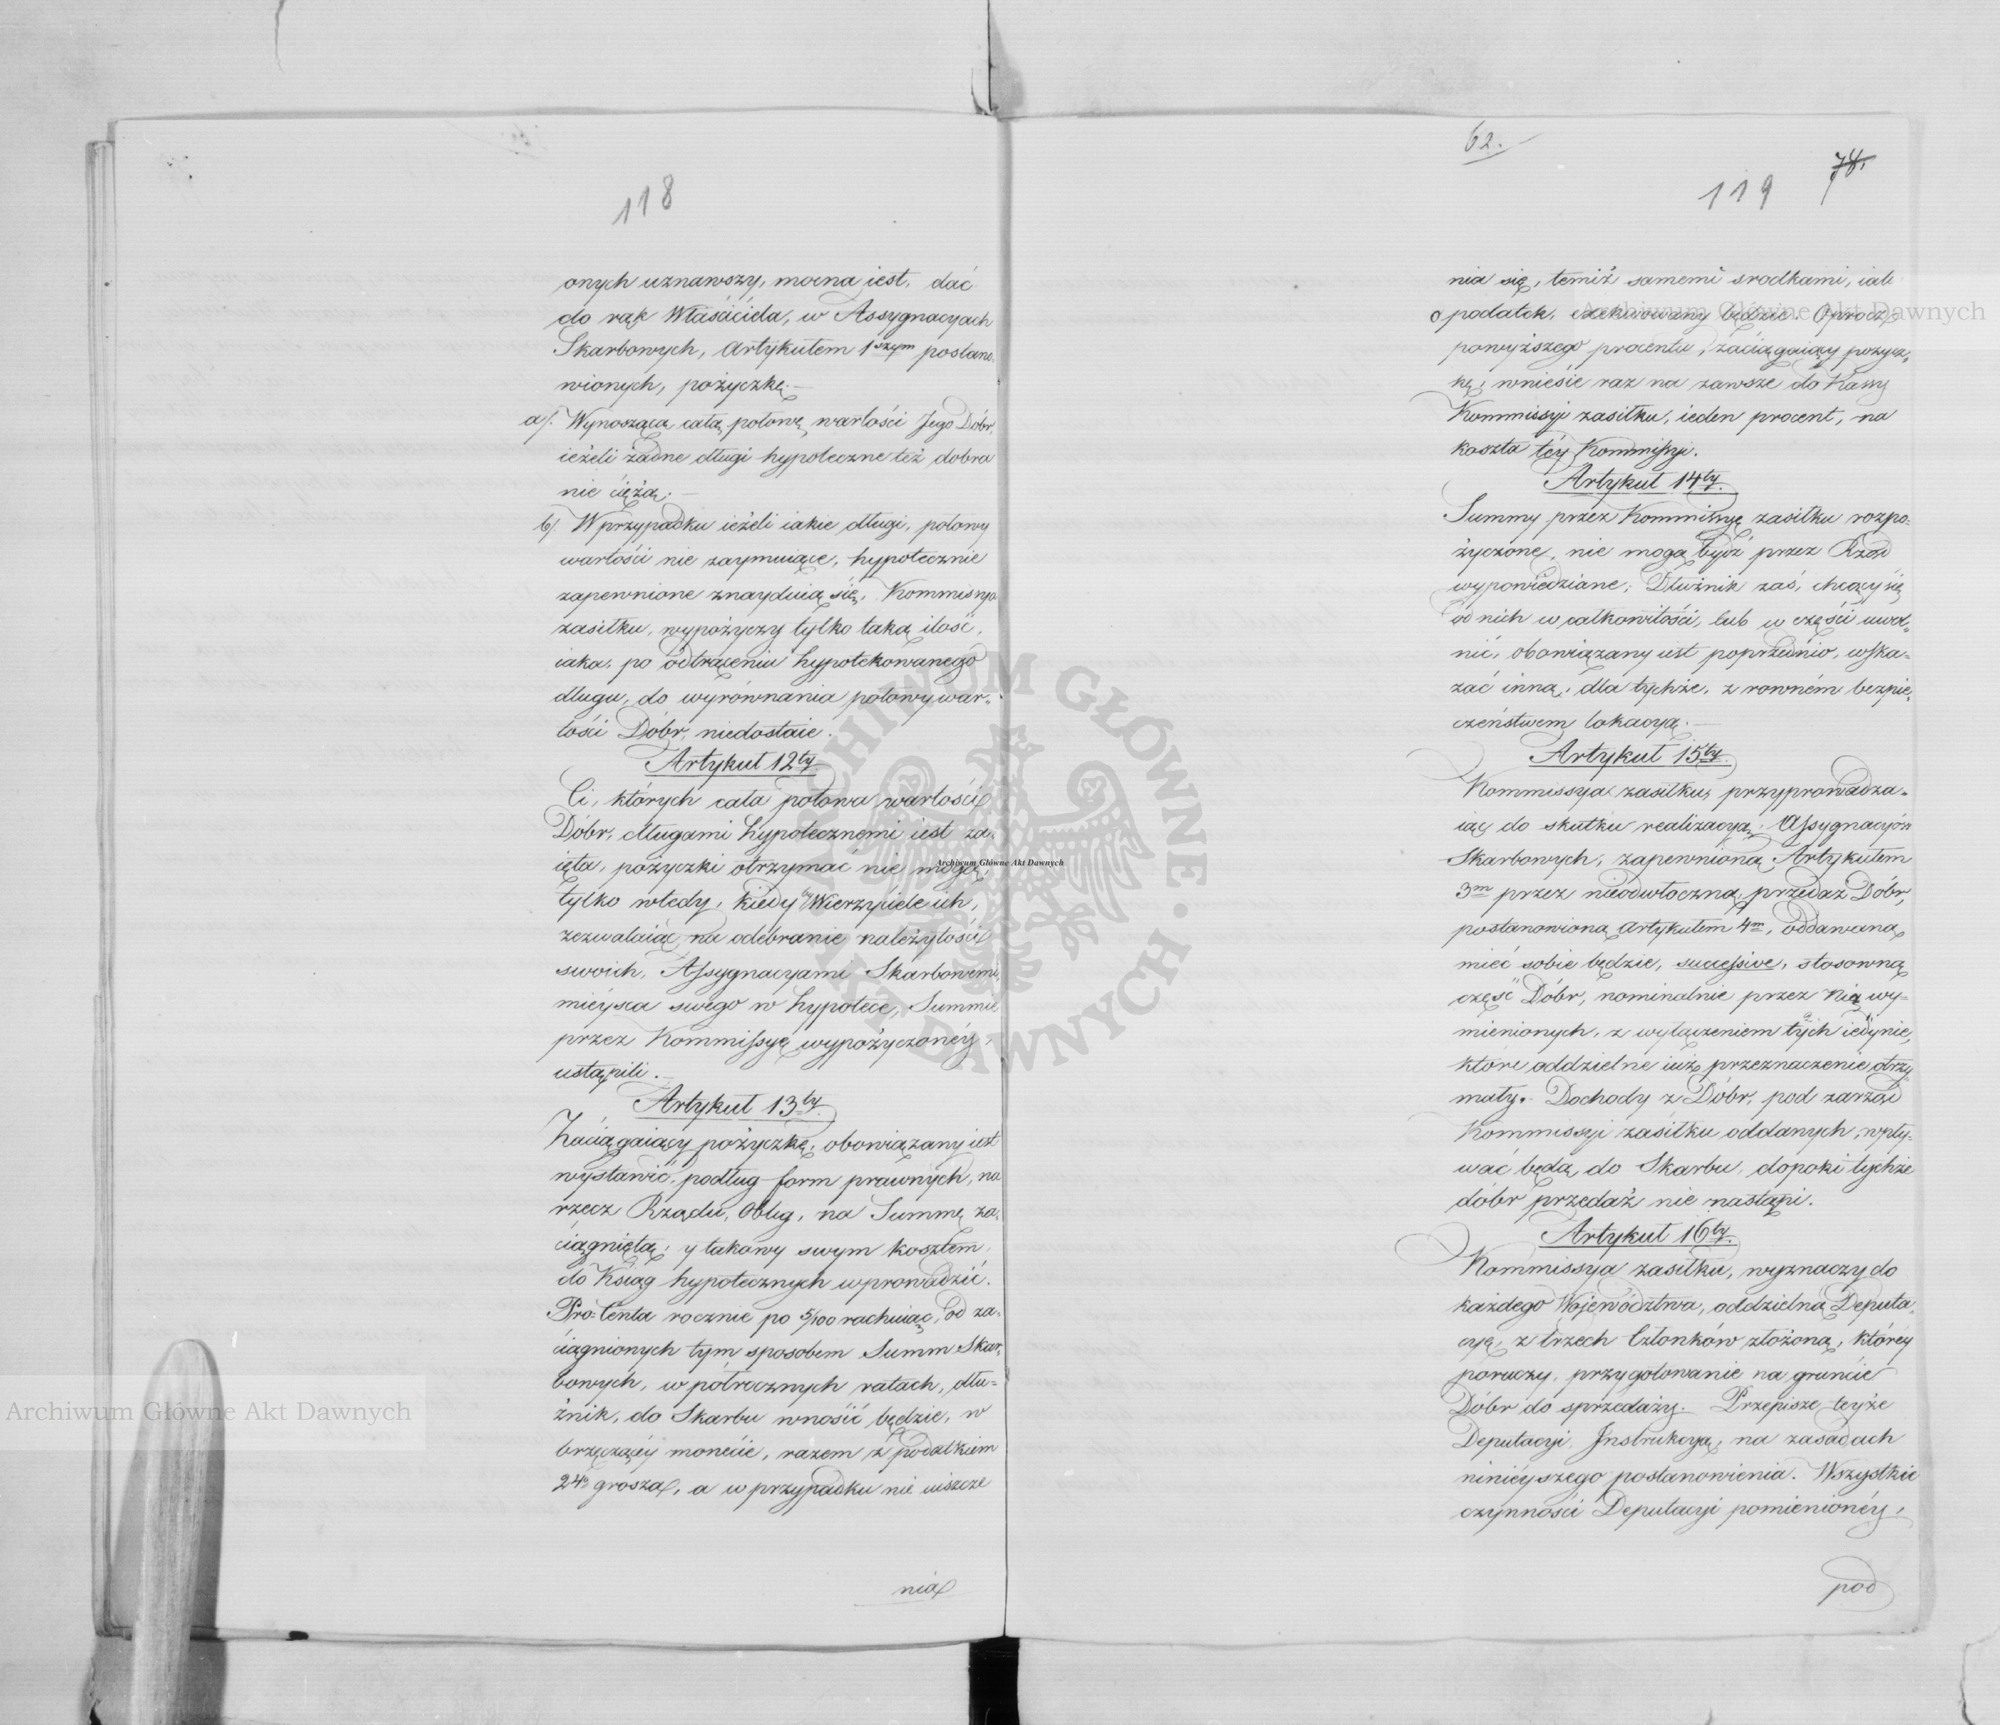 118
onych uznawszy, mocna iest, dać
do rąk Właściciela, w Assygnacyach
Skarbowych, Artykułem 1szym postano-
wionych, pożyczkę.—
a/. Wynoszącą całą połowę wartości Jego Dóbr,
ieżeli żadne długi hypoteczne też dobra
nie ciężą.—
b/. W przypadku ieżeli iakie długi, połowy
wartości nie zaymuiące, hypotecznie
zapewnione znayduią się, Kommissya
zasiłku, wypożyczy tylko taką ilość,
iaka, po odtrąceniu hypotekowanego
długu, do wyrównania połowy war=
tości Dóbr, niedostaie.
Artykuł 12ty.
Ci, których cała połowa wartości
Dóbr, długami hypotecznemi iest za-
ięta, pożyczki otrzymać nie mogą,
tylko wtedy, kiedy by Wierzyciele ich,
zezwalaiąc na odebranie należytości
swoich, Assygnacyami Skarbowemi,
mieysca swego w hypotece, Summie
przez Kommissyę wypożyczonéy,
ustąpili.—
Artykuł 13ty.
Zaciągaiący pożyczkę, obowiązany iest
wystawić, podług form prawnych, na
rzecz Rządu, Oblig, na Summę za-
ciągniętą, y takowy swym kosztem,
do Ksiąg hypotecznych wprowadzić.
Pro-Centa rocznie po 5/100 rachuiąc, od za-
ciągnionych tym sposobem Summ Skar-
bowych, w półrocznych ratach, dłu=
żnik, do Skarbu wnosić będzie, w
brzęczącéy monecie, razem z podatkiem
24go grosza, a w przypadku nie uiszcze
nia
62.
119
78.
nia się, temiż samemi srodkami, iak
podatek, exekwowany będzie. Oprocz
powyższego procentu, zaciągaiący pożycz=
kę, wniesie raz na zawsze do Kassy
Kommissyi zasiłku, ieden procent, na
koszta téy Kommissyi.
Artykuł 14ty.
Summy przez Kommissyę zasiłku rozpo-
życzone, nie mogą bydź przez Rząd
wypowiedziane; Dłużnik zaś, chcący się
od nich w całkowitości, lub w części uwol=
nić, obowiązany iest poprzednio, wska=
zać inną, dla tychże, z rowném bezpie=
czeństwem lokacyą.—
Artykuł 15ty.
Kommissya zasiłku, przyprowadza=
iąc do skutku realizacyą Assygnacyów
Skarbowych, zapewnioną Artykułem
3m przez nieodwłoczną przedaż Dóbr,
postanowioną Artykułem 4m, oddawaną
mieć sobie będzie, successive, stosowną
część Dóbr, nominalnie przez Nią wy=
mienionych, z wyłączeniem tych iedynie,
które oddzielne iuż przeznaczenie otrzy
mały.- Dochody z Dóbr, pod zarząd
Kommissyi zasiłku oddanych, wpły-
wać będą do Skarbu, dopoki tychże
dóbr przedaż nie nastąpi.
Artykuł 16ty.
Kommissya zasiłku, wyznaczy do
każdego Województwa, oddzielną Deputa-
cyę, z trzech Członków złożoną, któréy
poruczy, przygotowanie na gruncie
Dóbr do sprzedaży.— Przepisze teyże
Deputacyi Instrukcyą, na zasadach
ninieyszego postanowienia. Wszystkie
czynności Deputacyi pomienionéy,
pod
Archiwum Główne Akt Dawnych
Archiwum Główne Akt Dawnych
Archiwum Główne Akt Dawnych
ARCHIWUM GŁÓWNE AKT DAWNYCH